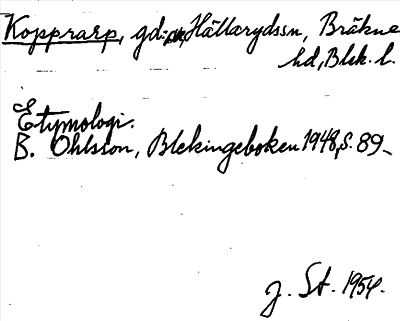 Kopprarp, gd: Hällarydssn, Bräkne
hd, Blek. l.
Etymologi.
B. Ohlsson, Blekingeboken 1948, s. 89-
J. St. 1954.